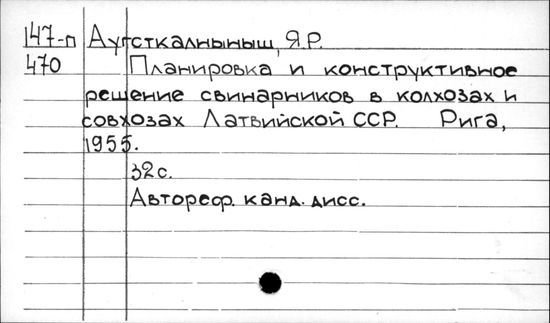 147-п Аугсткалныныш, Я.Р.
470 Планировка и конструктивное
решение свинарников в колхозах и
совхозах Латвийской ССР. Рига,
1955.
32с.
Автореф. канд. дисс.